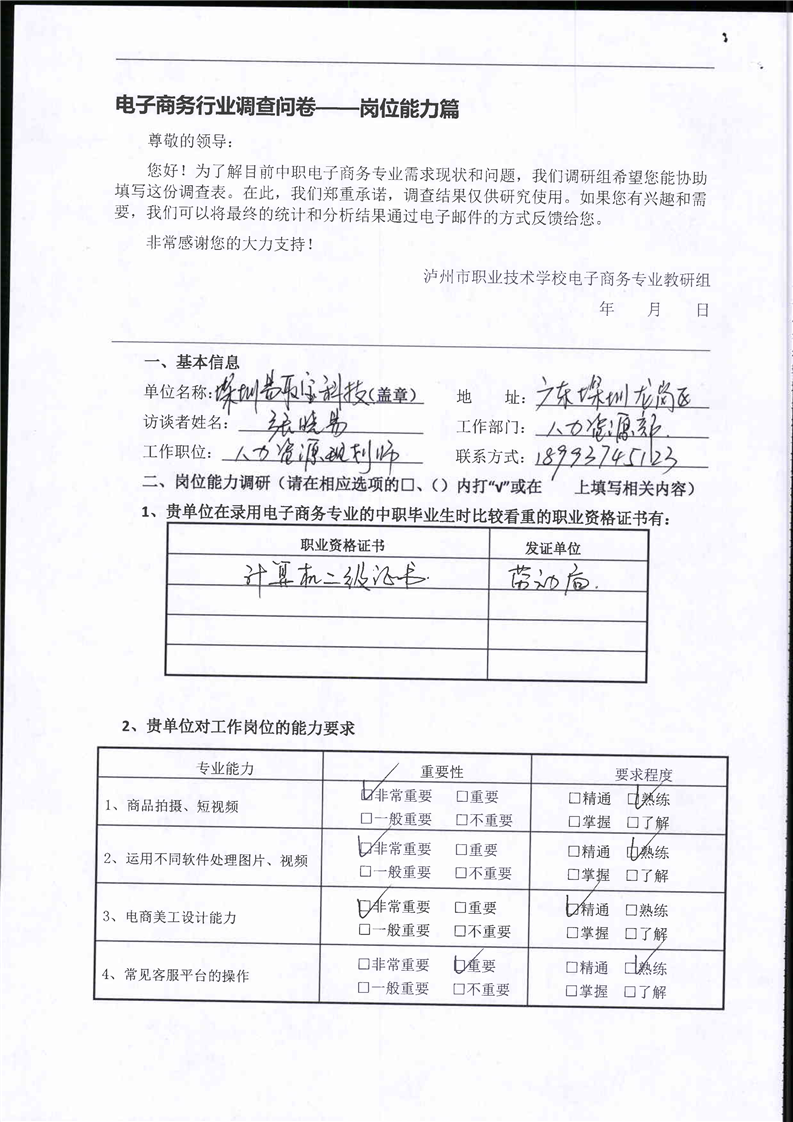 电子商务行业调查问卷——岗位能力篇
尊敬的领导:
您好！为了解目前中职电子商务专业需求现状和问题，我们调研组希望您能协助
填写这份调查表。在此，我们郑重承诺，调查结果仅供研究使用。如果您有兴趣和需
要，我们可以将最终的统计和分析结果通过电子邮件的方式反馈给您。
非常感谢您的大力支持！
泸州市职业技术学校电子商务专业教研组
年 月 日
一、基本信息
单位名称:深圳易取宝科技(盖章) 地 址:广东深圳龙岗区
访谈者姓名:张晓易 工作部门:人力资源部.
工作职位:人力资源规划师 联系方式:18993745123
二、岗位能力调研（请在相应选项的□、()内打“√”或在 上填写相关内容）
1、贵单位在录用电子商务专业的中职毕业生时比较看重的职业资格证书有:
职业资格证书 发证单位
计算机二级证书. 劳动局.
2、贵单位对工作岗位的能力要求
专业能力 重要性 要求程度
1、商品拍摄、短视频
☑非常重要 □重要 □精通 ☑熟练
□一般重要 □不重要 □掌握 □了解
2、运用不同软件处理图片、视频
☑非常重要 □重要 □精通 ☑熟练
□一般重要 □不重要 □掌握 □了解
3、电商美工设计能力
☑非常重要 □重要 ☑精通 □熟练
□一般重要 □不重要 □掌握 □了解
4、常见客服平台的操作
□非常重要 ☑重要 □精通 ☑熟练
□一般重要 □不重要 □掌握 □了解